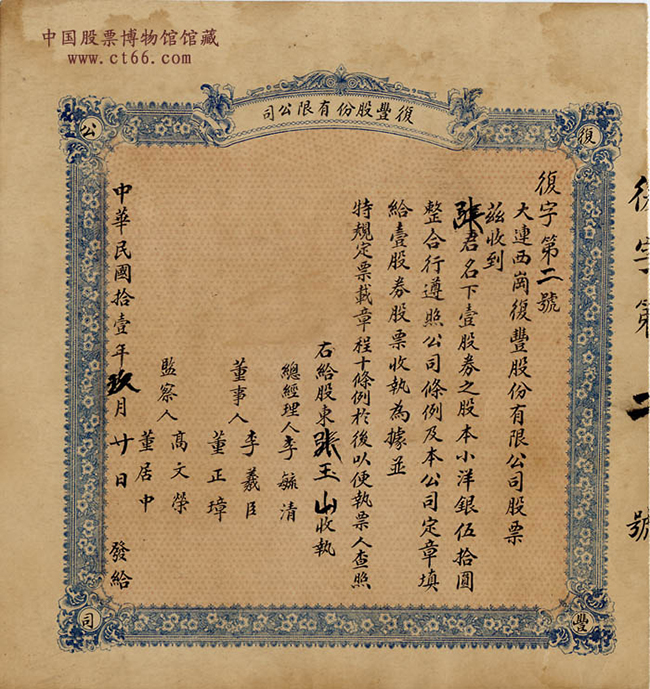 中国股票博物馆馆藏
www.ct66.com
復豐股份有限公司
復
豐
公
司
復字第二號
復字第二號
大連西崗復豐股份有限公司股票
茲收到
張君名下壹股券之股本小洋銀伍拾圓
整合行遵照公司條例及本公司定章填
給壹股券股票收執為據並
特規定票載章程十條例於後以便執票人查照
右給股東張玉山收執
總經理人李毓清
董事人李羲臣
董正璋
監察人高文榮
董居中
中華民國拾壹年玖月廿日發給